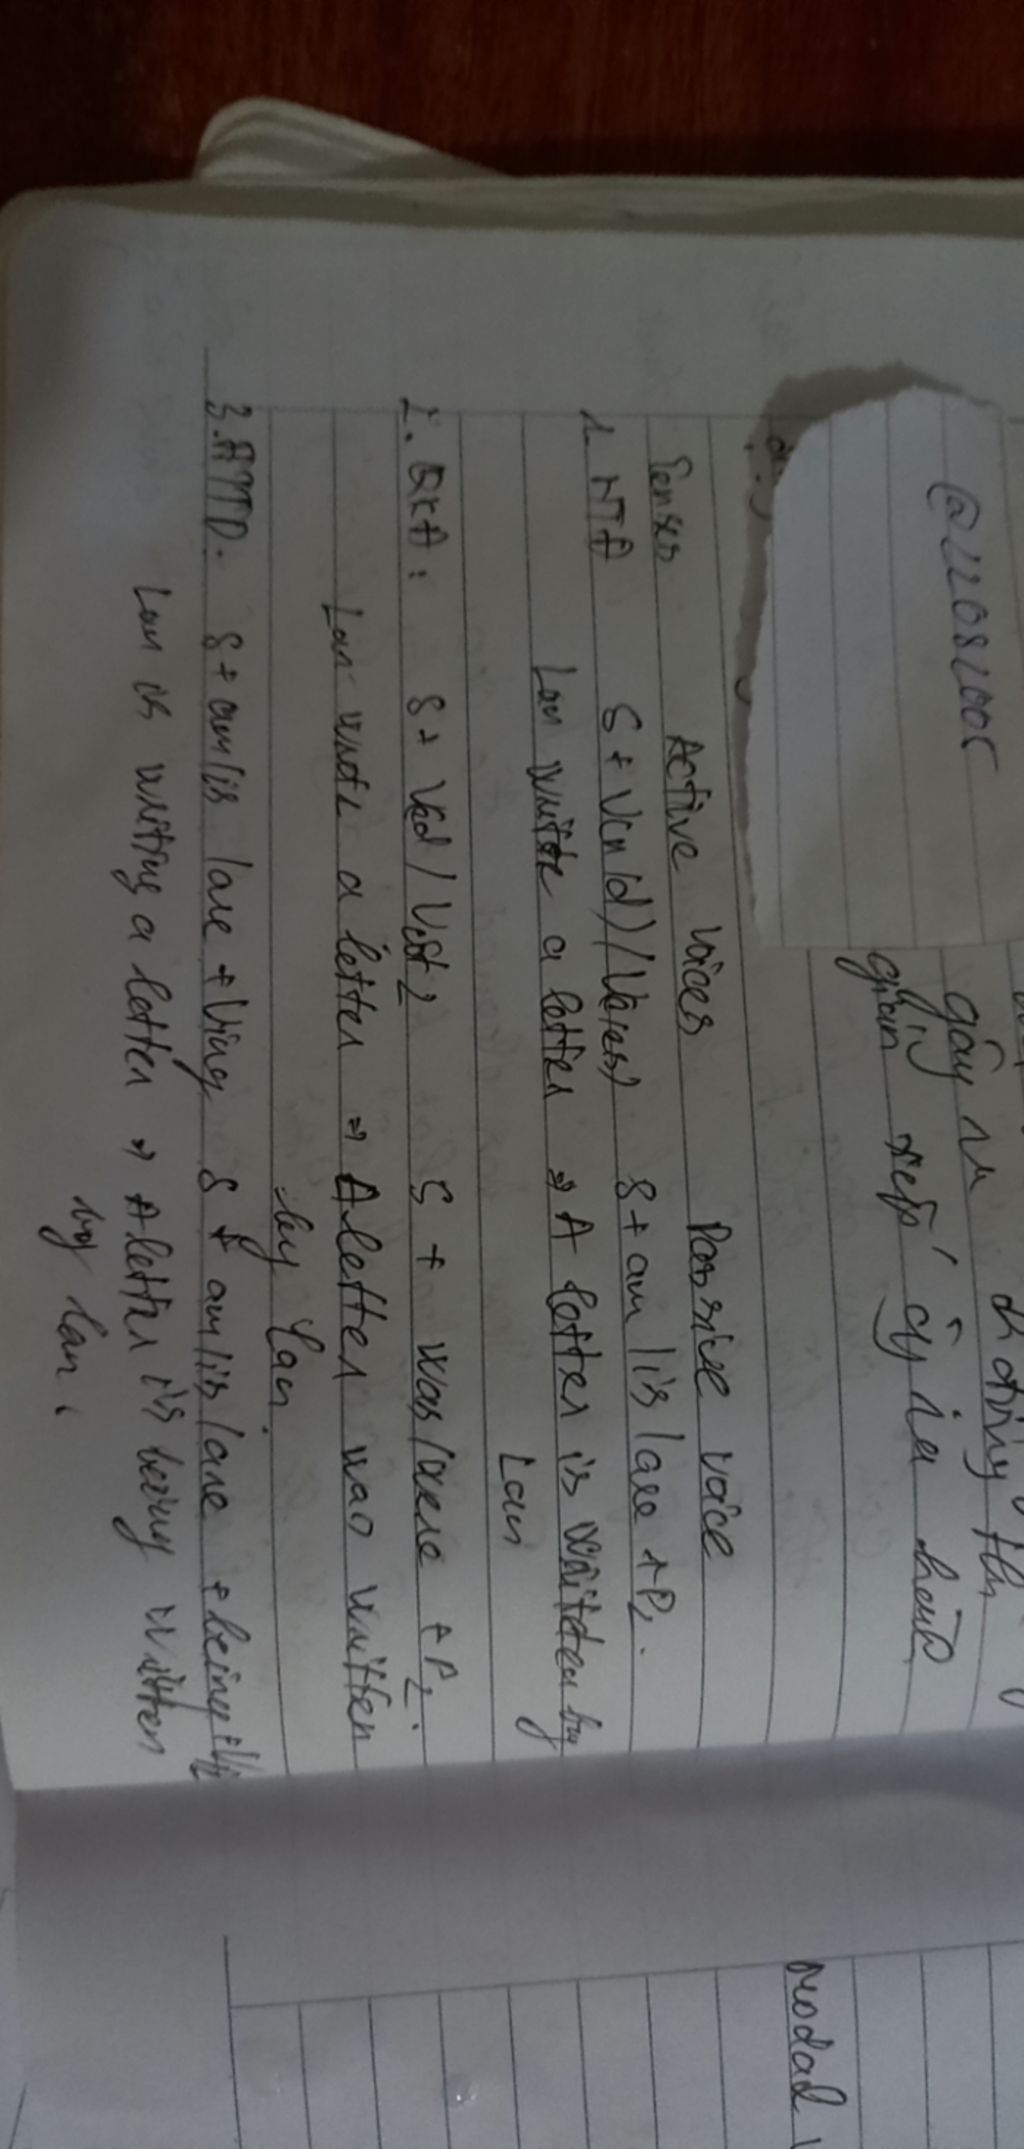 @22082005
gây ra
gián tiếp
Tenses Active voices Passive voice
1. HTĐ S + V(nd)/V(s,es) S + am/is/are + P2.
Lan write a letter => A letter is written by
Lan
2. QKĐ: S + Ved/Vcột2 S + was/were + P2.
Lan wrote a letter => A letter was written
by Lan.
3. HTTD. S + am/is/are + Ving S + am/is/are + being +
Lan is writing a letter => A letter is being written
by Lan.
modal